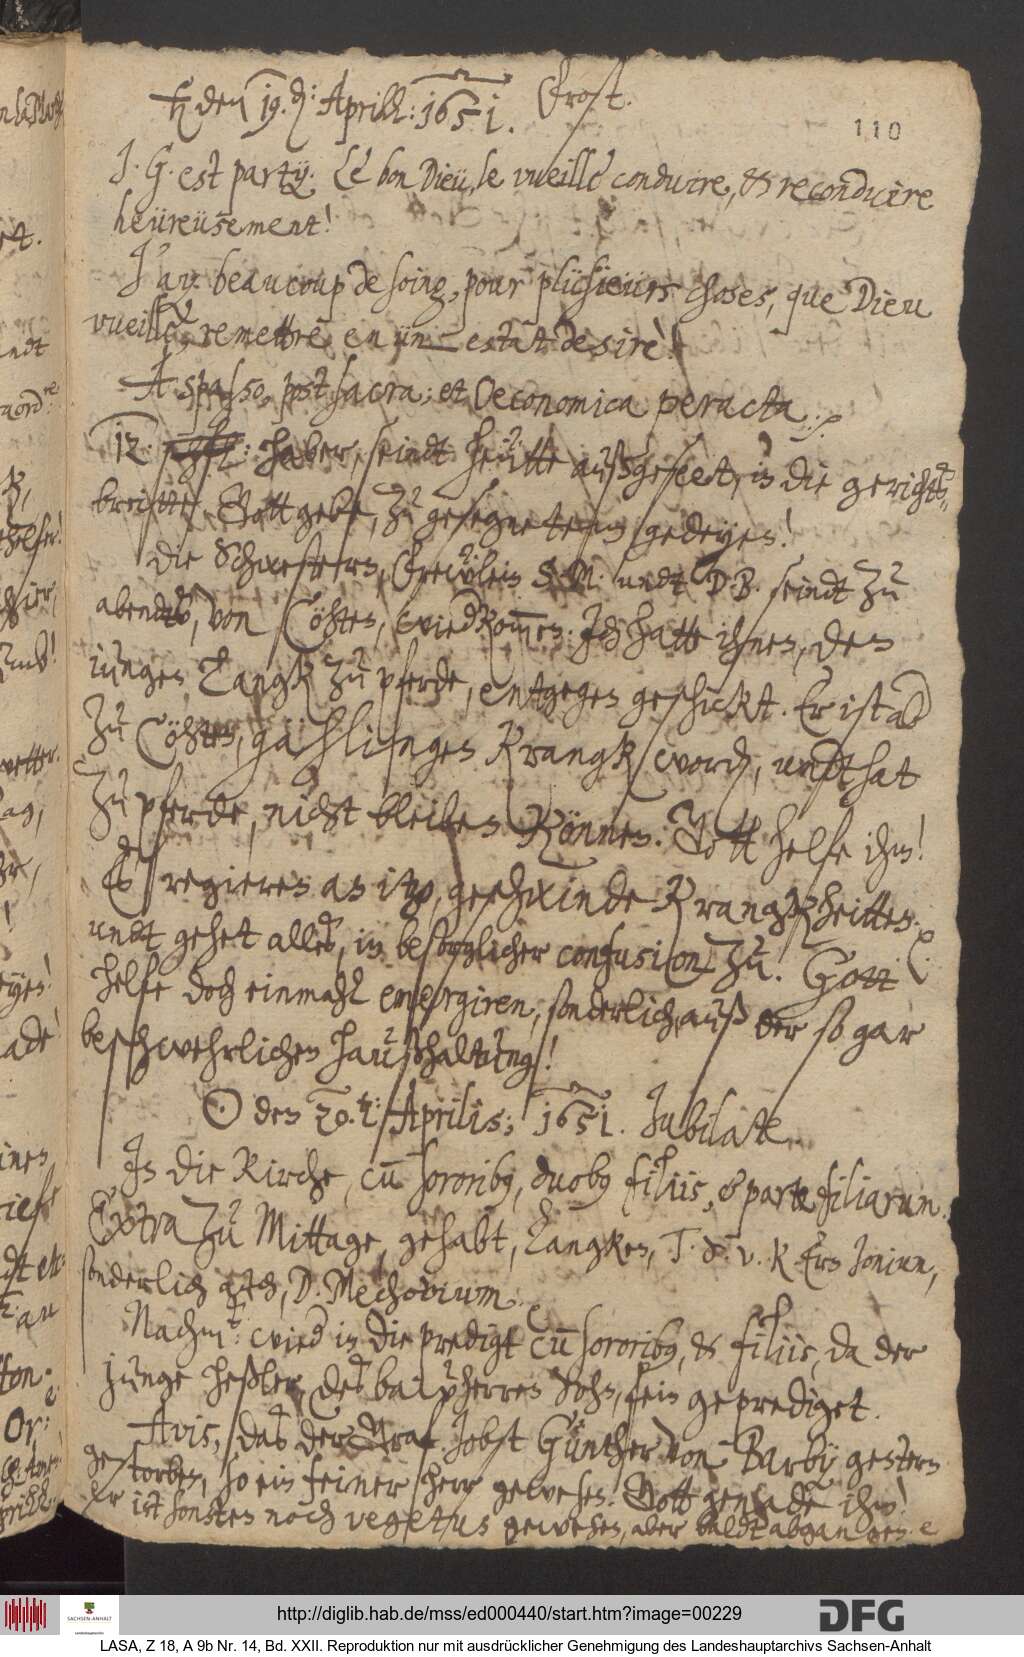 ♄ den 19. d: Aprill: 1651. Frost.
110
J. G. est party. Le bon Dieu, le vueille conduire, & reconduire
heüreüsement!
J'ay beaucoup de soing, pour plüsieürs choses, que Dieu
vueille, remettre en ün estat desirè!
A spasso, post sacra; et Oeconomica peracta.
12 haber, seindt heütte außgeseet, in die gerichts
breitte. Gott gebe, zu gesegnetem gedeyen!
Die Schwestern, Frewlein S. M. undt D B. seindt zu
abendts, von Cöhten, wiedkommen. Jch hatte ihnen, den
iungen Langk zu pferde, entgegen geschickt. Er ist ab
zu Cöhten, gächlingen krangk word, undt hat
zu pferde, nicht bleiben können. Gott helfe ihm!
Es regieren an itzo, geschwinde krangkheitten.
undt gehet alles, in besorglicher confusion zu. Gott
helfe doch einmahl emergiren, sonderlich, auß der so gar
beschwehrlichen haußhaltung!
☉ den 20. t: Aprilis; 1651. Jubilate
Jn die kirche, cum sororibus, duobus filiis, & parte filiarum.
Extra zu Mittage, gehabt, Langken, T. S. v. K. Ern Jonium,
sonderlich auch, D. Mechovium.
Nachmt: wied in die predigt cum sororibus, & filiis, da der
junge Heßler, des baw herren Sohn, fein geprediget.
Avis, das der Graf Jobst Günther von Barby gestern
gestorben, so ein feiner herr gewesen. Gott genade ihm!
Er ist sonsten noch vegetus gewesen, aber baldt abgangen.
http://diglib.hab.de/mss/ed000440/start.htm?image=00229
SACHSEN-ANHALT
DFG
LASA, Z 18, A 9b Nr. 14, Bd. XXII. Reproduktion nur mit ausdrücklicher Genehmigung des Landeshauptarchivs Sachsen-Anhalt